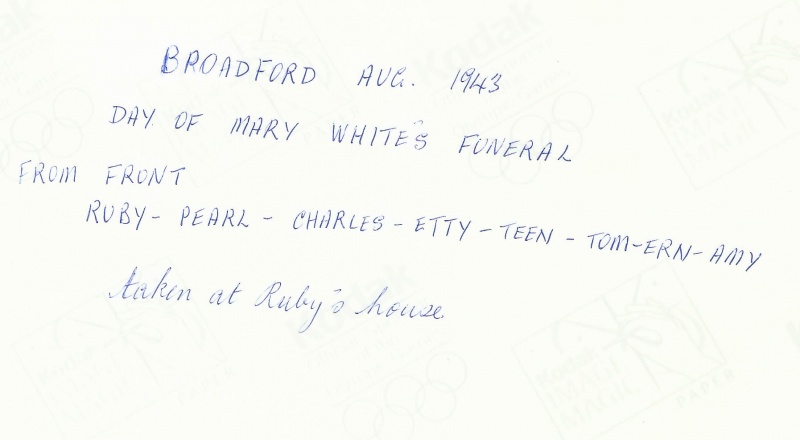 BROADFORD AUG. 1943
DAY. OF MARY WHITE'S FUNERAL
FROM FRONT
RUBY - PEARL - CHARLES - ETTY - TEEN - TOM - ERN - AMY
taken at Ruby's house
Kodak
Kodak
IMAGE
MAGIC
PAPER